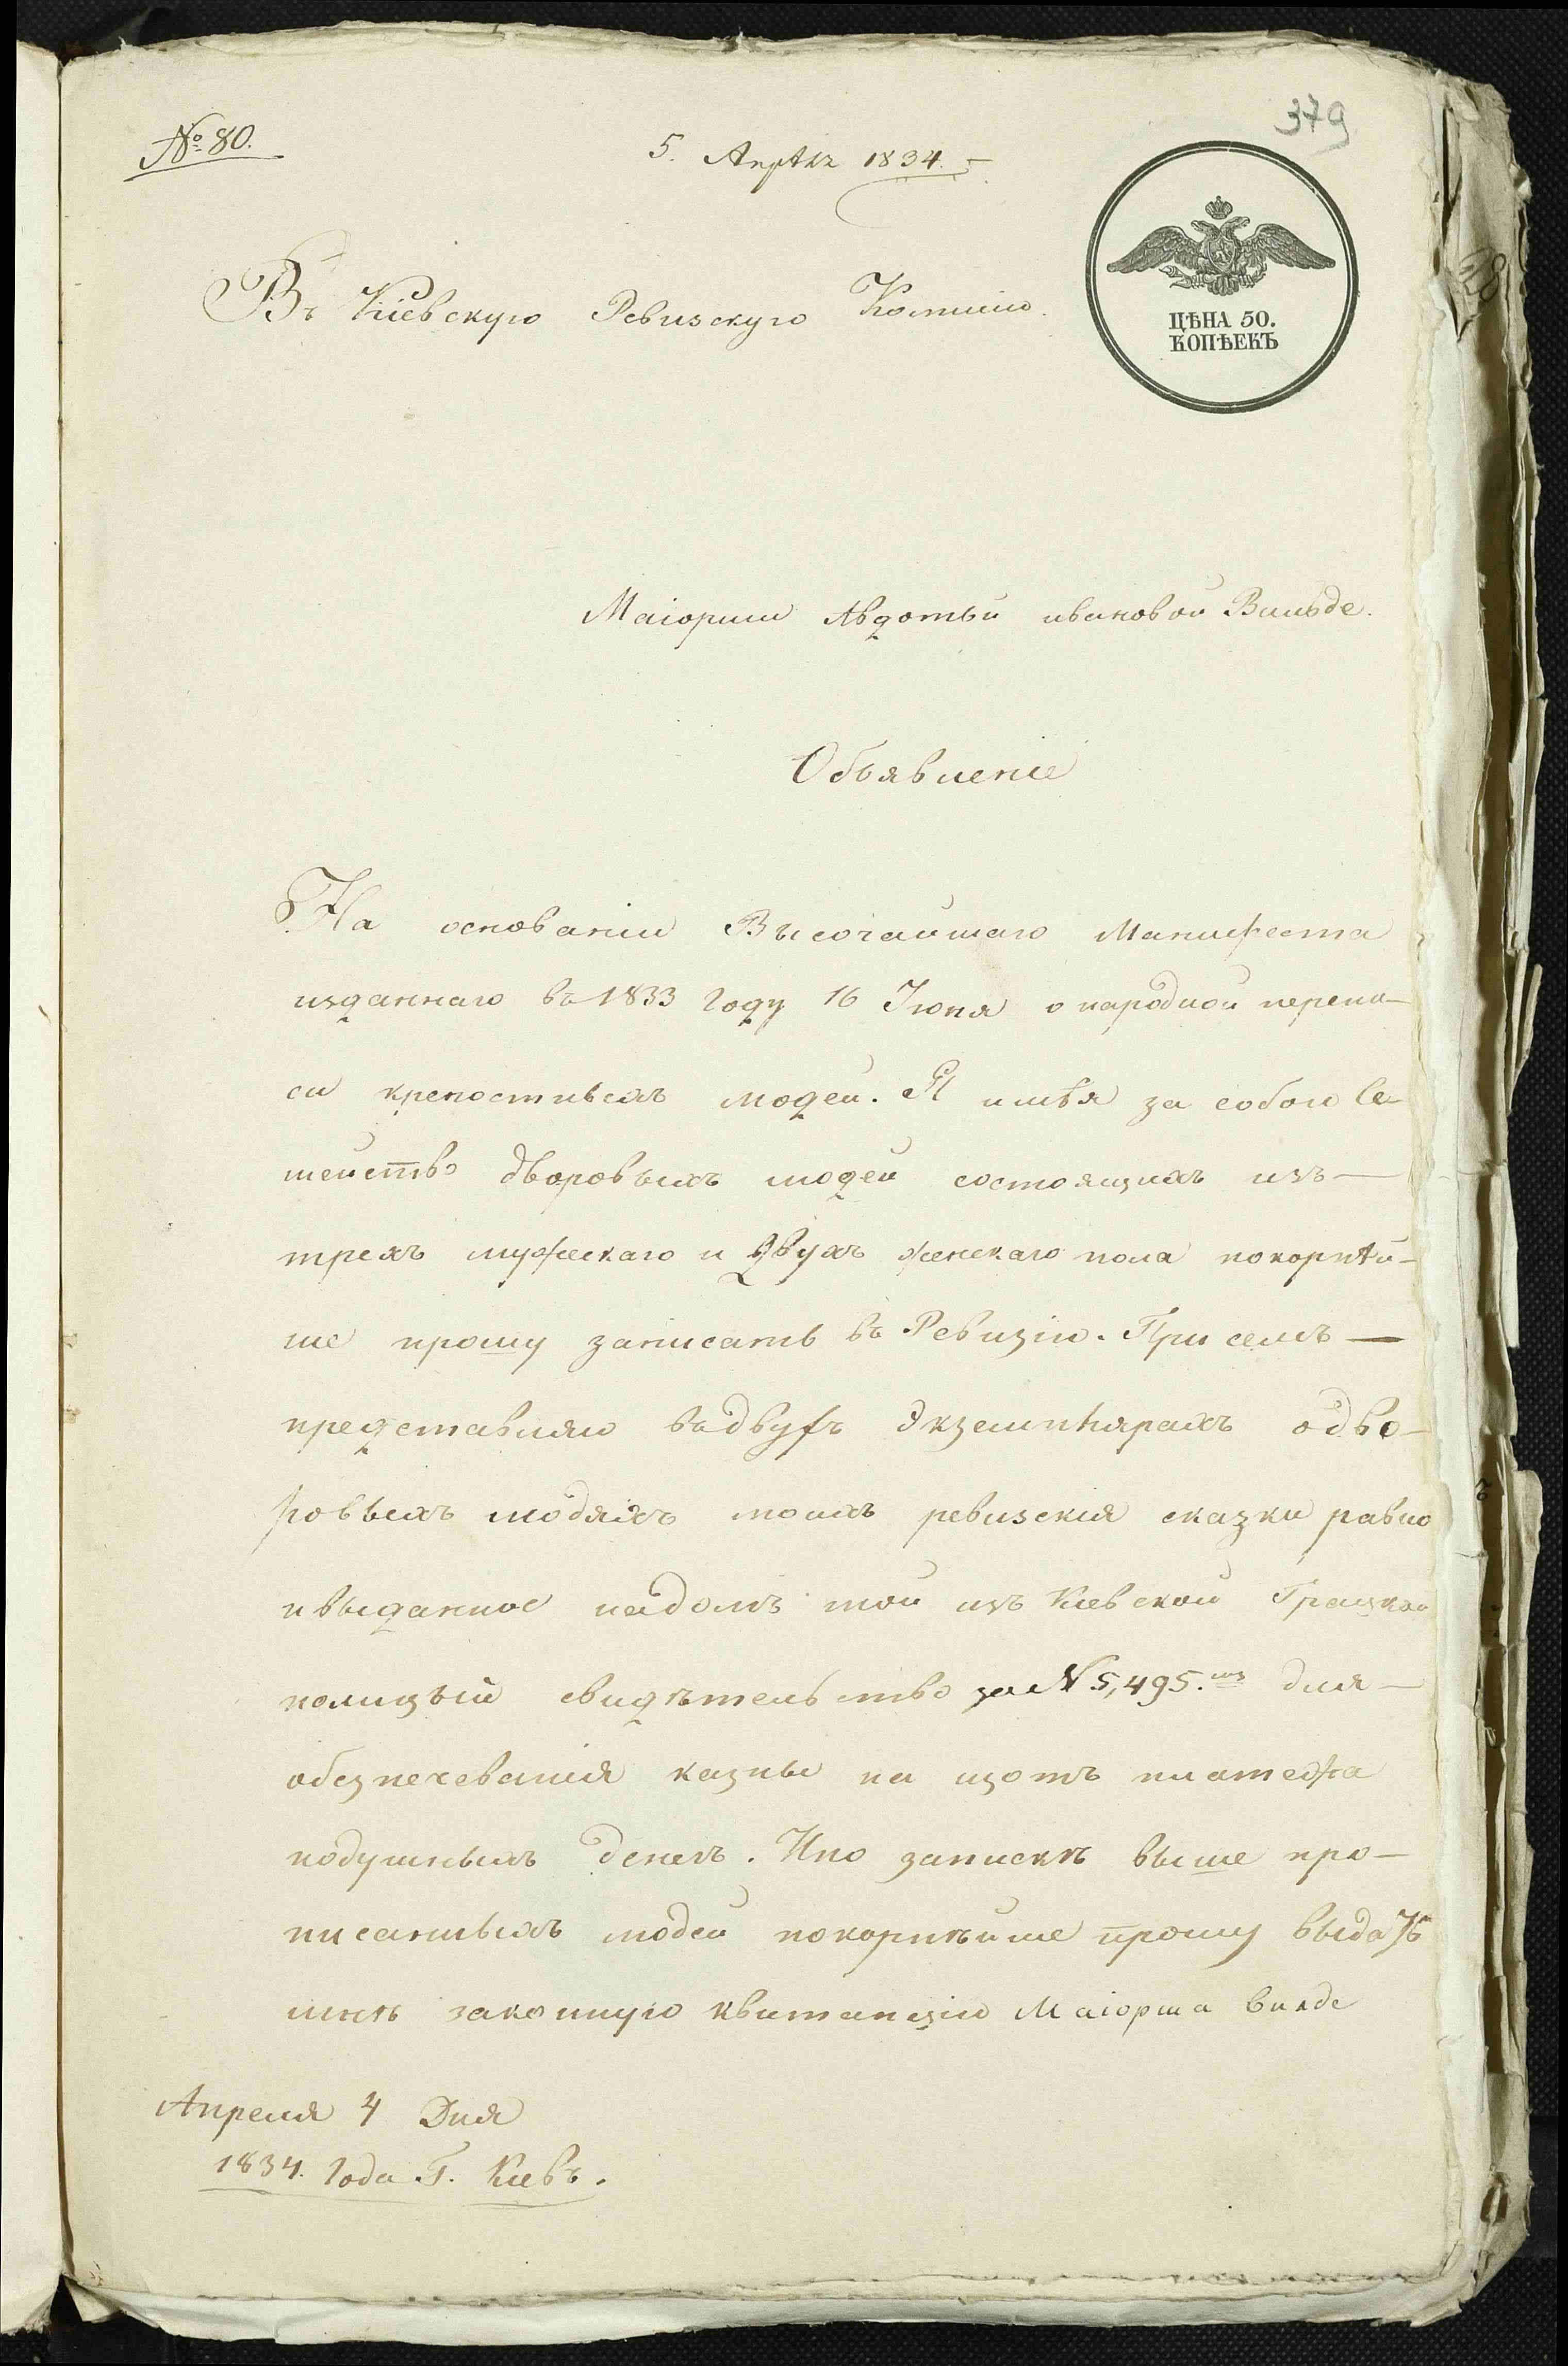 379
№ 80.
5. Апрѣля 1834.
Въ Кіевскую Ревизскую Комисію.
ЦѢНА 50.
КОПѢЕКЪ
Маіорши Авдотьи ивановой Вильде.
Объявленіе
На основаніи Высочайшаго Манифеста
изданнаго въ 1833 году 16 Іюня о народной перепи-
си крепостныхъ людей. Я имѣя за собою Се-
мейство дворовыхъ людей состоящихъ изъ —
трехъ мужескаго и двухъ женскаго пола покорнѣй-
ше прошу записать въ Ревизію. При семъ —
представляю въ двухъ Экземплярахъ о дво-
ровыхъ людяхъ моихъ ревизскія сказки равно
и выданное на домъ мой изъ Киевской Градской
полицыи свидѣтельство за № 5,495.мъ для —
обезпечеванія казны на щотъ платежа
подушныхъ денегъ. И по запискѣ выше про-
писанныхъ людей покорнѣйше прошу выдать
мнѣ законную квитанцію Маіорша вилде
Апреля 4 Дня
1834. Года Г. Киевъ.